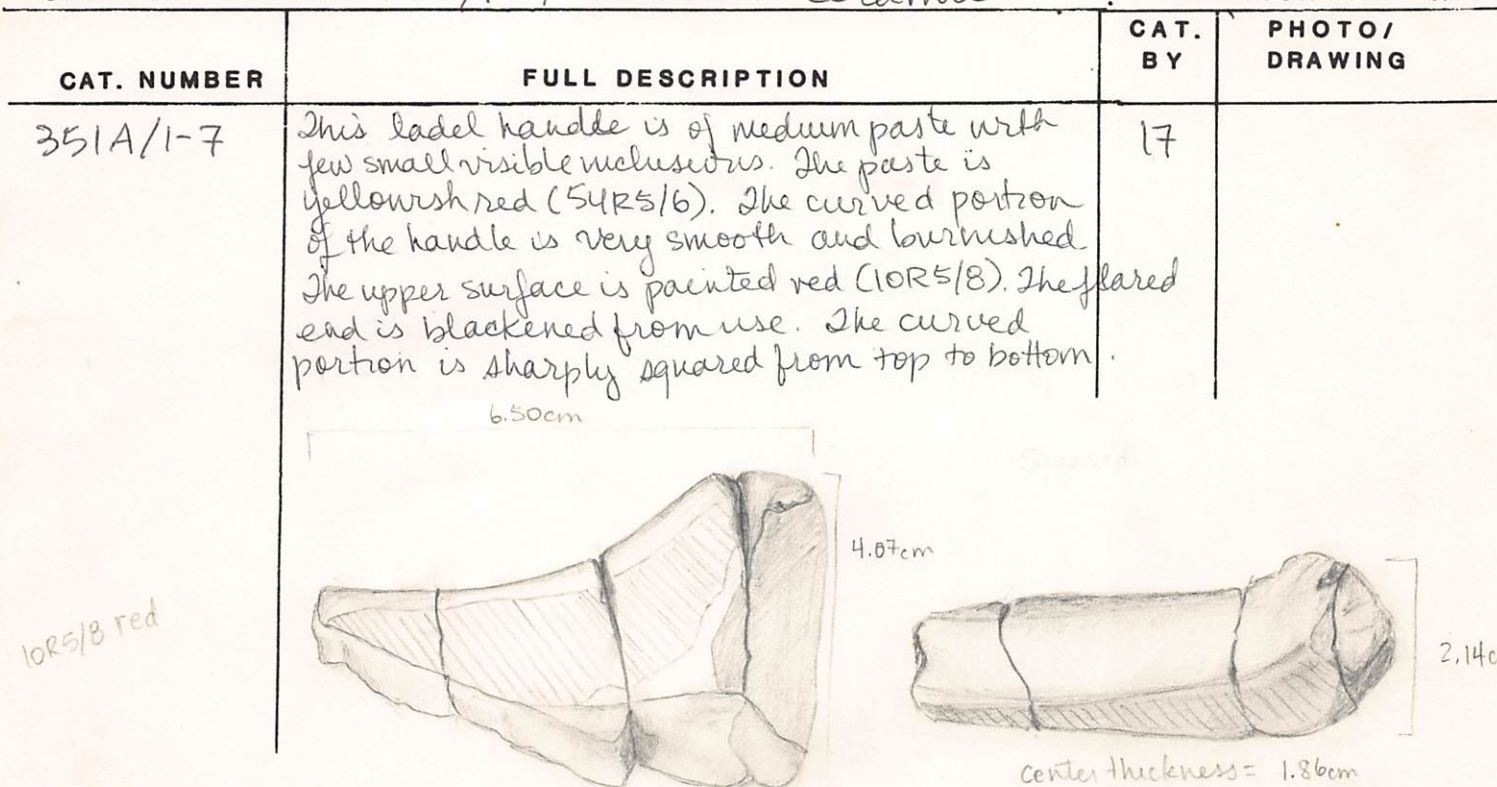 Ceramic
CAT. NUMBER
FULL DESCRIPTION
CAT.
BY
PHOTO/
DRAWING
351A/1-7
This ladel handle is of medium paste with
few small visible inclusions. The paste is
yellowish red (5YR5/6). The curved portion
of the handle is very smooth and burnished
The upper surface is painted red (10R5/8). The flared
end is blackened from use. The curved
portion is sharply squared from top to bottom.
17
6.50cm
4.07cm
10R5/8 red
2.14c
center thickness = 1.86cm